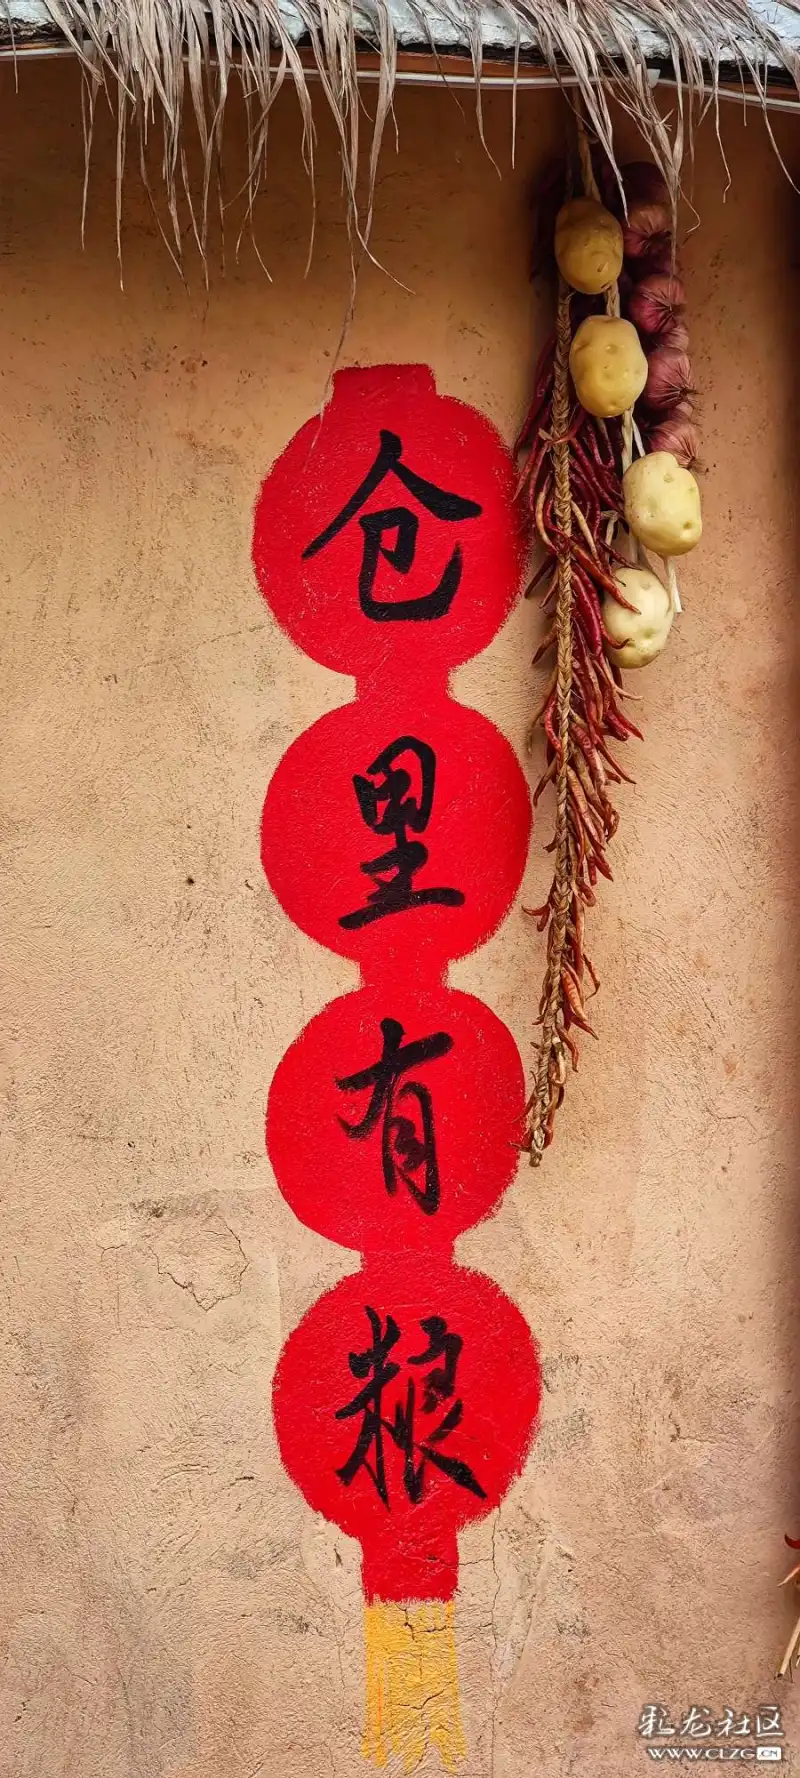 仓里有粮
彩龙社区
WWW.CLZG.CN